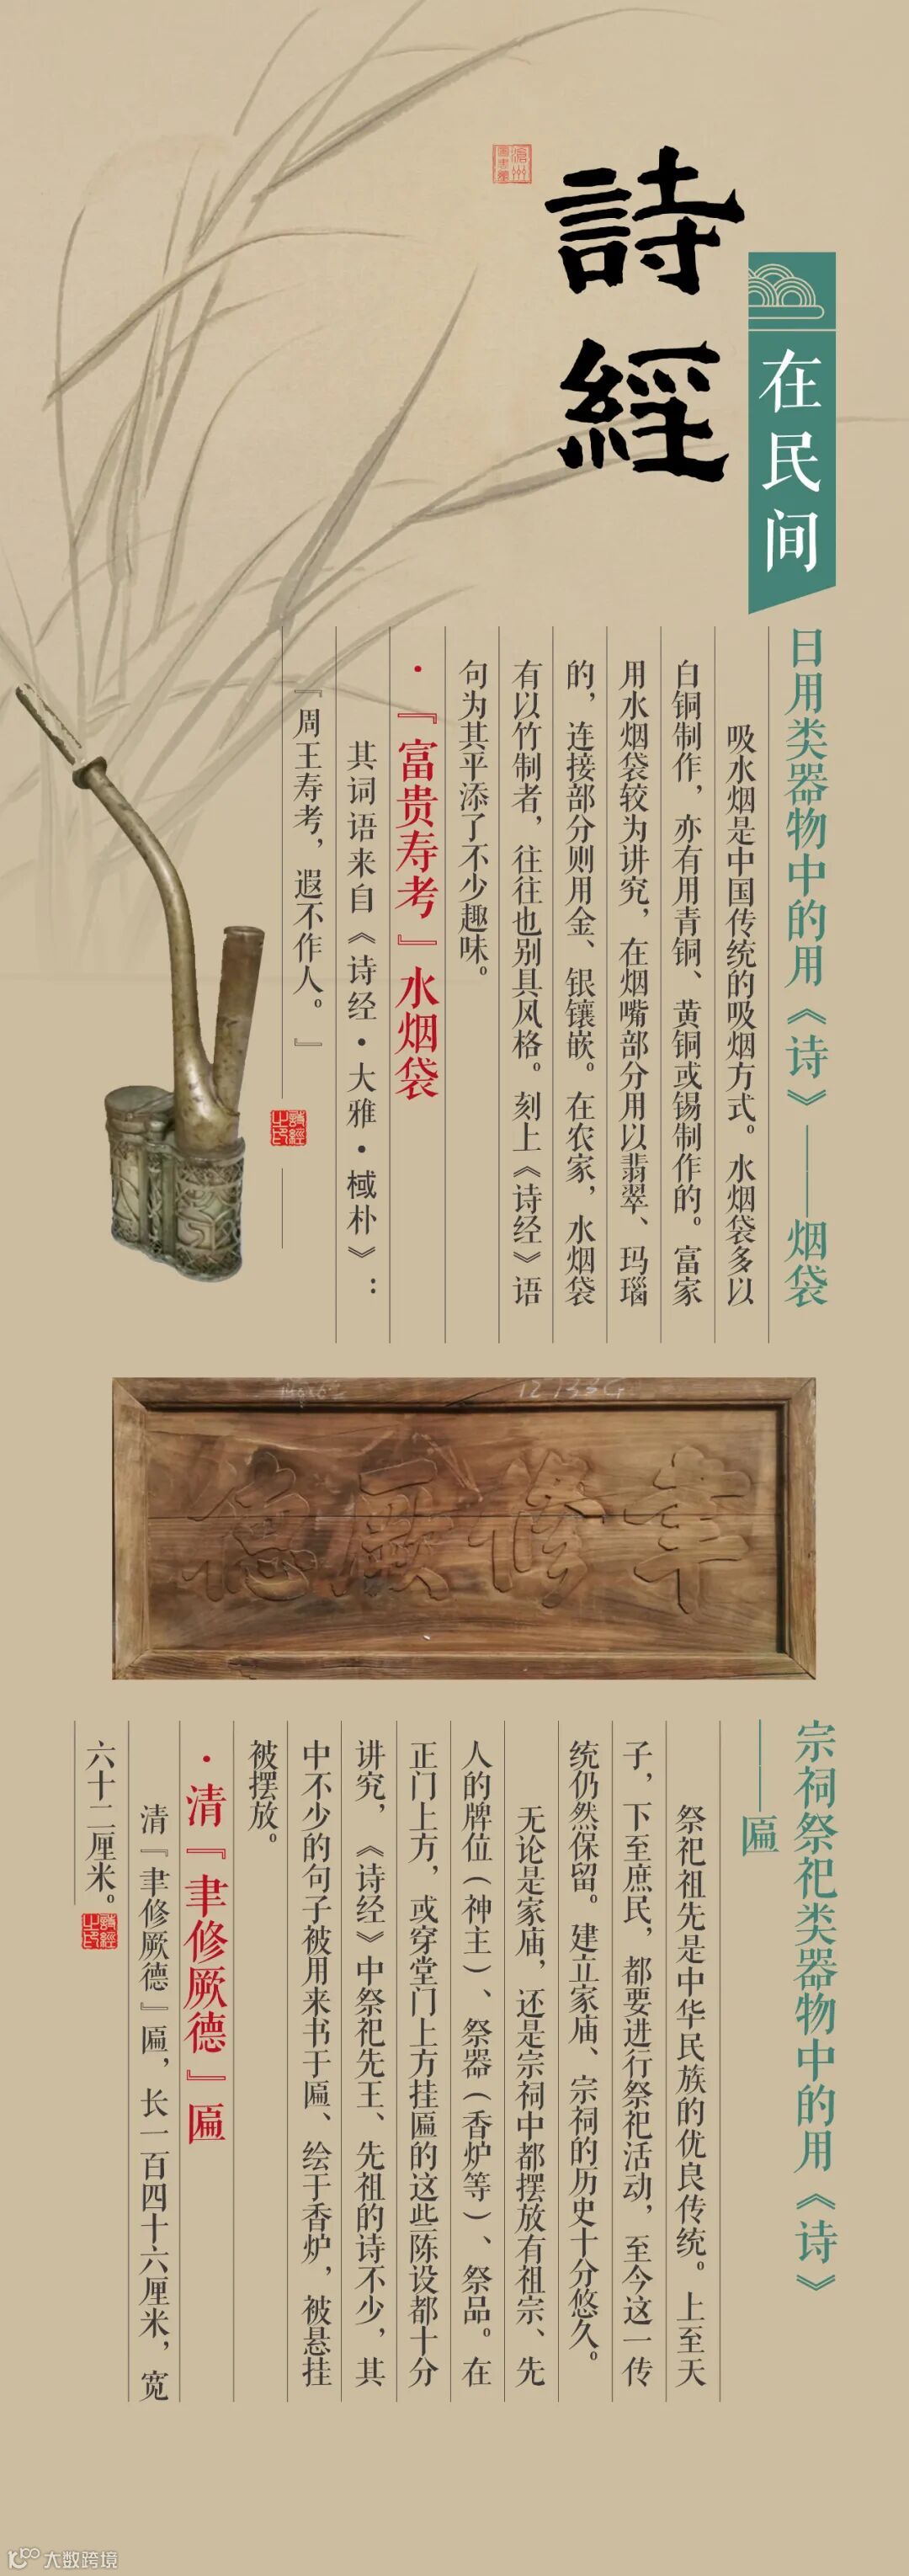 詩經
在民间
沧州
图书馆
日用类器物中的用《诗》——烟袋
吸水烟是中国传统的吸烟方式。水烟袋多以
白铜制作，亦有用青铜、黄铜或锡制作的。富家
用水烟袋较为讲究，在烟嘴部分用以翡翠、玛瑙
的，连接部分则用金、银镶嵌。在农家，水烟袋
有以竹制者，往往也别具风格。刻上《诗经》语
句为其平添了不少趣味。
·『富贵寿考』水烟袋
其词语来自《诗经·大雅·棫朴》：
『周王寿考，遐不作人。』
詩經之印
聿修厥德
宗祠祭祀类器物中的用《诗》
——匾
祭祀祖先是中华民族的优良传统。上至天
子，下至庶民，都要进行祭祀活动，至今这一传
统仍然保留。建立家庙、宗祠的历史十分悠久。
无论是家庙，还是宗祠中都摆放有祖宗、先
人的牌位（神主）、祭器（香炉等）、祭品。在
正门上方，或穿堂门上方挂匾的这些陈设都十分
讲究，《诗经》中祭祀先王、先祖的诗不少，其
中不少的句子被用来书于匾、绘于香炉，被悬挂
被摆放。
·清『聿修厥德』匾
清『聿修厥德』匾，长一百四十六厘米，宽
六十二厘米。
詩經之印
大数跨境